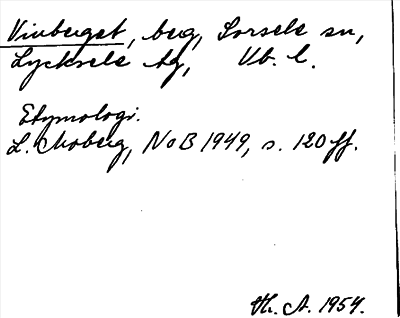 Vinberget, berg, Sorsele sn,
Lycksele tg, Vb. l.
Etymologi.
L. Moberg, NoB 1949, s. 120 ff.
Th. A. 1954.